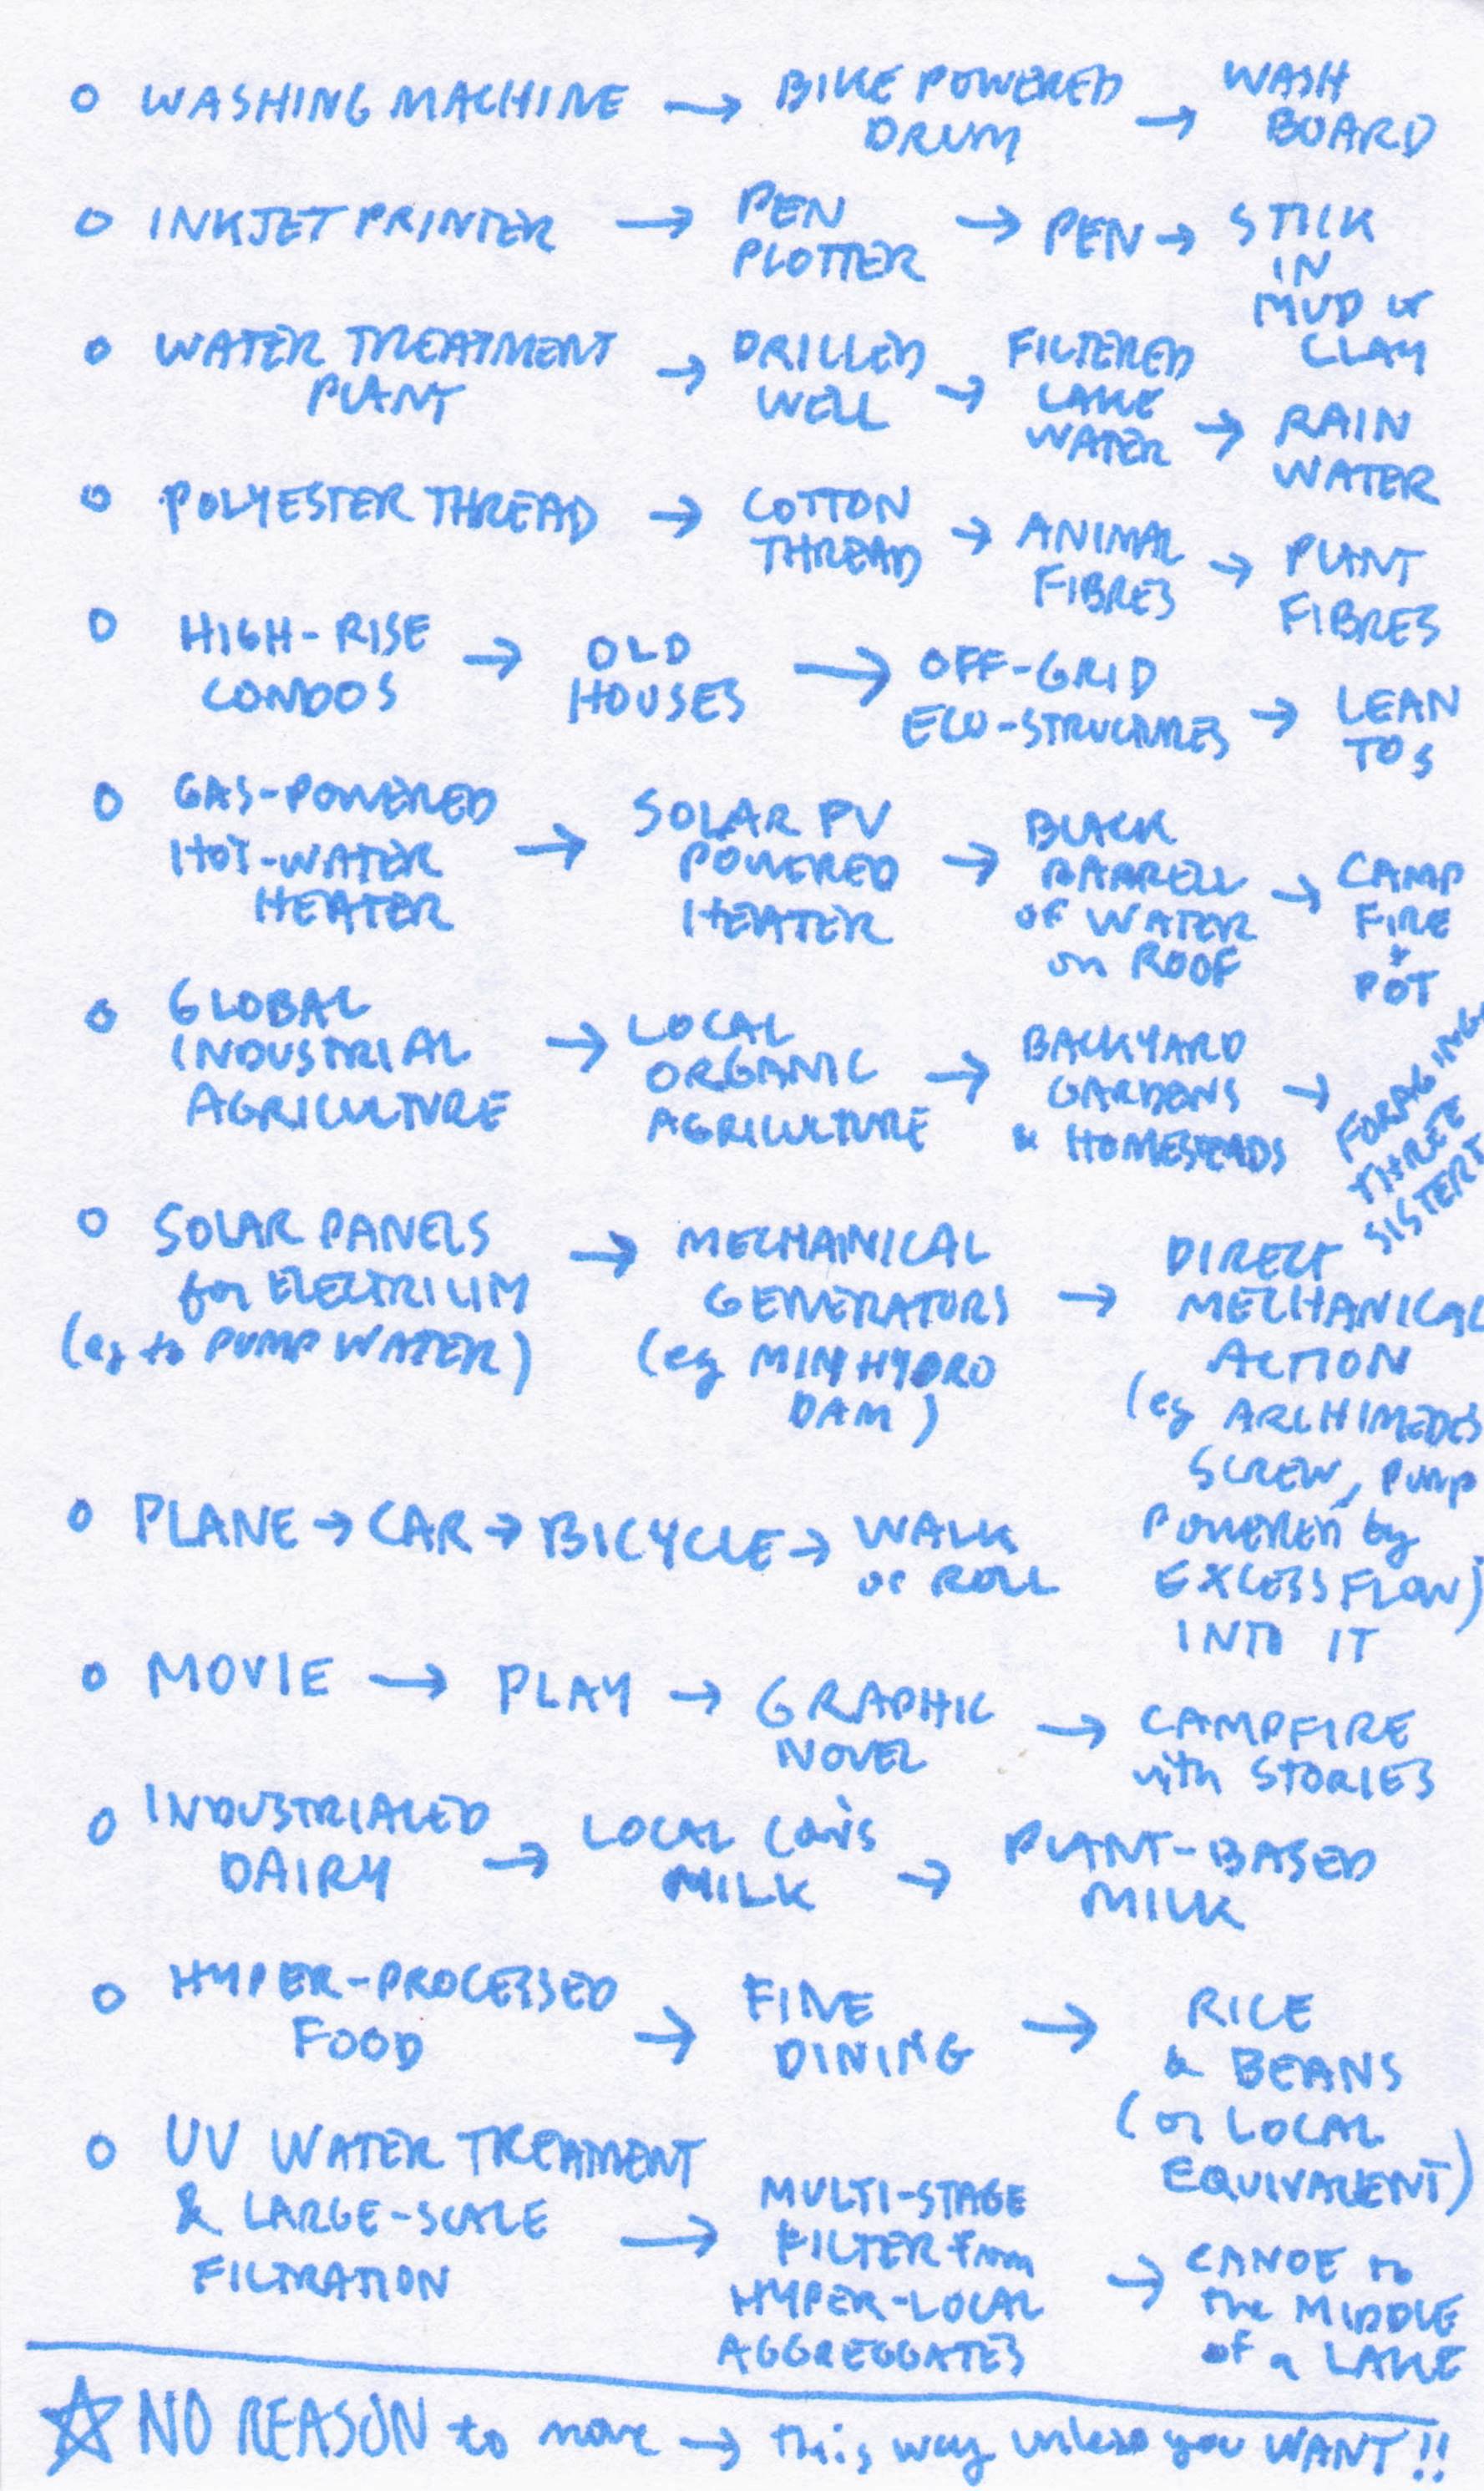 ○ WASHING MACHINE → BIKE POWERED DRUM → WASH BOARD
○ INKJET PRINTER → PEN PLOTTER → PEN → STICK IN MUD or CLAY
○ WATER TREATMENT PLANT → DRILLED WELL → FILTERED LAKE WATER → RAIN WATER
○ POLYESTER THREAD → COTTON THREAD → ANIMAL FIBRES → PLANT FIBRES
○ HIGH-RISE CONDOS → OLD HOUSES → OFF-GRID ECO-STRUCTURES → LEAN TOS
○ GAS-POWERED HOT-WATER HEATER → SOLAR PV POWERED HEATER → BLACK BARRELL OF WATER on ROOF → CAMP FIRE + POT
○ GLOBAL INDUSTRIAL AGRICULTURE → LOCAL ORGANIC AGRICULTURE → BACKYARD GARDENS & HOMESTEADS → FORAGING THREE SISTERS
○ SOLAR PANELS for (eg to PUMP WATER) → MECHANICAL GENERATORS (eg MINI HYDRO DAM) → DIRECT MECHANICAL ACTION (eg ARCHIMEDES SCREW, PUMP POWERED by EXCESS FLOW) INTO IT
○ PLANE → CAR → BICYCLE → WALK or ROLL
○ MOVIE → PLAY → GRAPHIC NOVEL → CAMPFIRE with STORIES
○ INDUSTRIALED DAIRY → LOCAL COW'S MILK → PLANT-BASED MILK
○ HYPER-PROCESSED FOOD → FINE DINING → RICE & BEANS (or LOCAL EQUIVALENT)
○ UV WATER TREATMENT & LARGE-SCALE FILTRATION → MULTI-STAGE FILTER from HYPER-LOCAL AGGREGGATES → CANOE to the MIDDLE of a LAKE
☆ NO REASON to move → this way unless you WANT!!